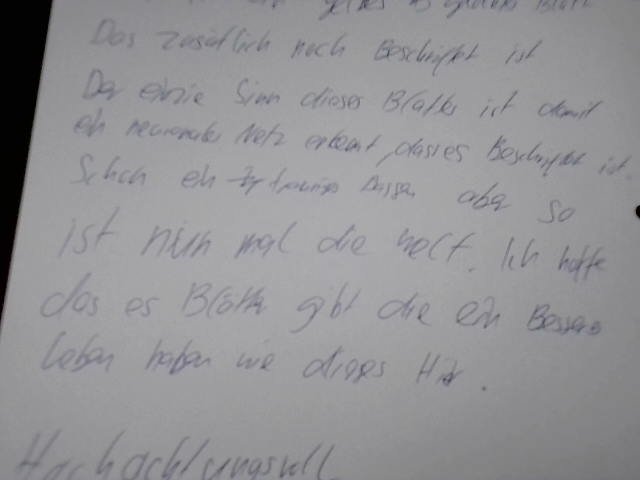 ein gelbes
Das zusätlich noch Beschriftet ist
Der einzie Sinn dieses Blattes ist damit
ein neuronales Netz erkennt, dass es Beschriftet ist.
Schon ein trauriges aber so
ist nun mal die welt. Ich hoffe
das es Blätter gibt die ein Besseres
leben haben wie dieses Hir.
Hochachtungsvoll